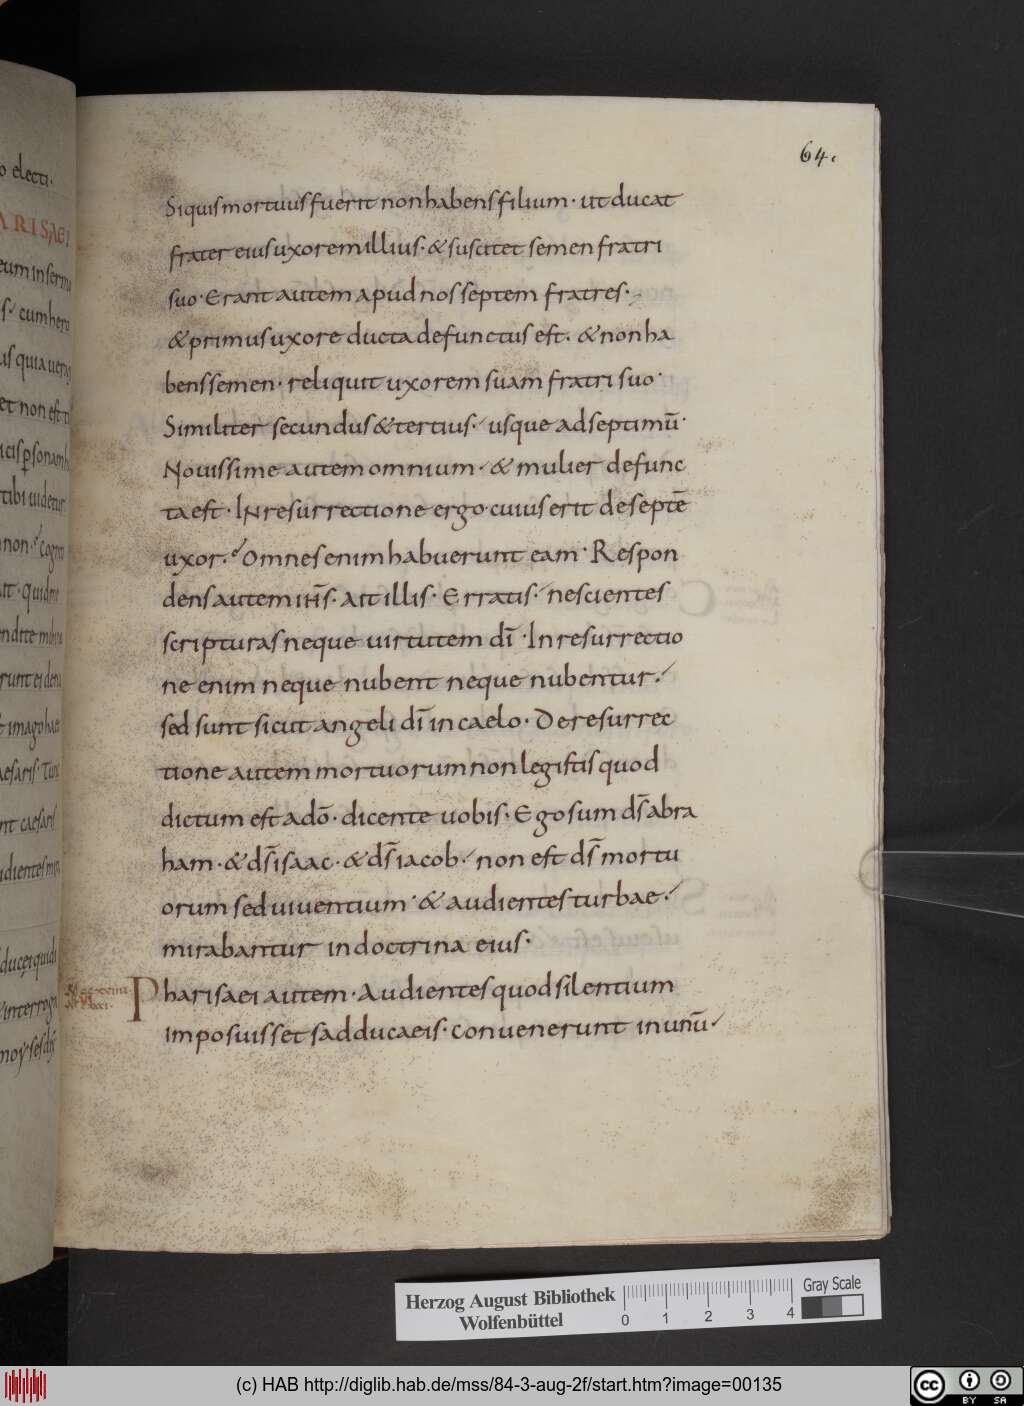 64.
Siquis mortuus fuerit non habens filium · ut ducat
frater eius uxorem illius · & suscitet semen fratri
suo · Erant autem apud nos septem fratres ·
& primus uxore ducta defunctus est . & non ha
bens semen · reliquit uxorem suam fratri suo ·
Similiter secundus & tertius · usque ad septimū ·
Nouissime autem omnium · & mulier defunc
ta est · IN resurrectione ergo cuius erit de septē
uxor . Omnes enim habuerunt eam · Respon
dens autem ih̄s · ait illis · Erratis · nescientes
scripturas neque uirtutem dī · In resurrectio
ne enim neque nubent neque nubentur .
sed sunt sicut angeli dī in caelo · De resurrec
tione autem mortuorum non legistis quod
dictum est adō · dicente uobis · Ego sum ds̄ abra
ham · & ds̄ isaac · & ds̄ iacob · non est ds̄ mortu
orum sed uiuentium · & audientes turbae ·
mirabantur in doctrina eius ·
Pharisaei autem · Audientes quod silentium
imposuisset sadducaeis · conuenerunt in unū ·
o electi ·
ARISAEI
eum in sermo
cum hero
us quia uerax
et non est ti
tibi uidetur
non
quid me
imago haec
aesaris · Tunc
nt caesaris
Herzog August Bibliothek
Wolfenbüttel
0 1 2 3 4
Gray Scale
(c) HAB http://diglib.hab.de/mss/84-3-aug-2f/start.htm?image=00135
cc BY SA